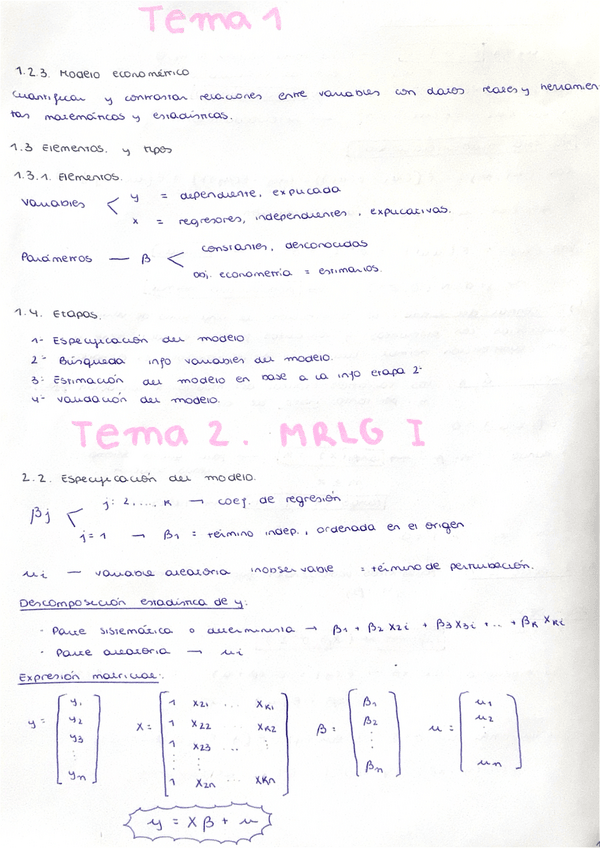 Tema 1
1.2.3. Modelo econométrico
Cuantificar y contrastar relaciones entre variables con datos reales y herramien
tas matemáticas y estadísticas.
1.3 Elementos y tipos
1.3.1. Elementos.
Variables < y = dependiente, explicada
x = regresores, independientes, explicativas.
Parámetros — β < constantes, desconocidas
obj. econometría = estimarlos.
1.4. Etapas.
1- Especificación del modelo
2- Búsqueda info variables del modelo.
3- Estimación del modelo en base a la info etapa 2-
4- Validación del modelo.
Tema 2. MRLG I
2.2. Especificación del modelo.
βj < j: 2, ..., K → coef. de regresión
j = 1 → β1 = término indep., ordenada en el origen
ui — variable aleatoria inobservable = término de perturbación.
Descomposición estadística de y:
· Parte sistemática o determinista → β1 + β2 X2i + β3 X3i + ... + βK XKi
· Parte aleatoria → ui
Expresión matricial:
y = [y1 y2 y3 ⋮ yn] X = [1 X21 ... XK1 1 X22 ... XK2 1 X23 ... ⋮ ⋮ ⋮ 1 X2n ... XKn] β = [β1 β2 ⋮ βn] u = [u1 u2 ⋮ un]
y = X β + u